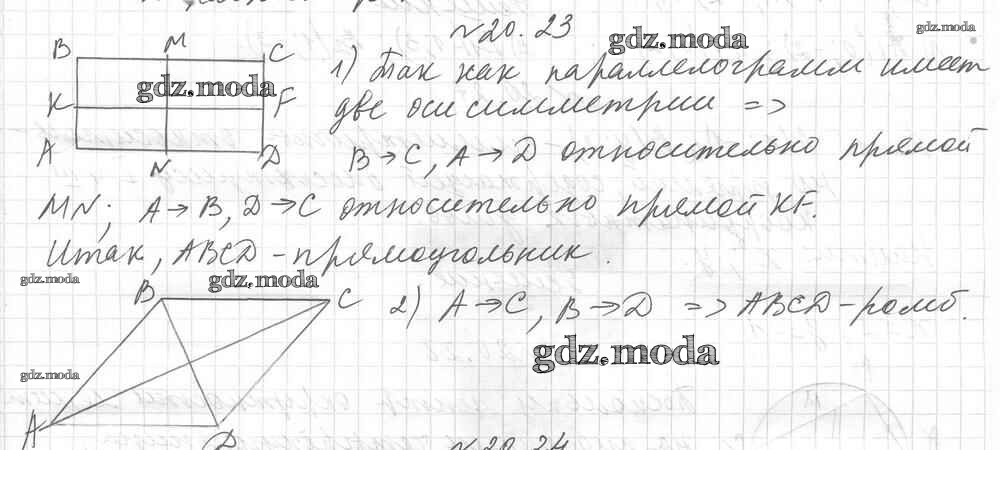 №20.23
gdz.moda
gdz.moda
B M C
1) Так как параллелограмм имеет
gdz.moda
K F
две оси симметрии =>
A N D
B→C, A→D относительно прямой
MN; A→B, D→C относительно прямой KF.
Итак, ABCD - прямоугольник.
gdz.moda
gdz.moda
B C
2) A→C, B→D => ABCD - ромб.
gdz.moda
gdz.moda
A D
№20.24